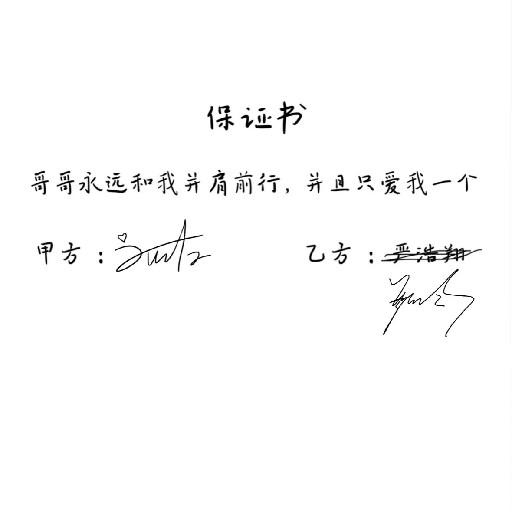 保证书
哥哥永远和我并肩前行，并且只爱我一个
甲方： 乙方：严浩翔